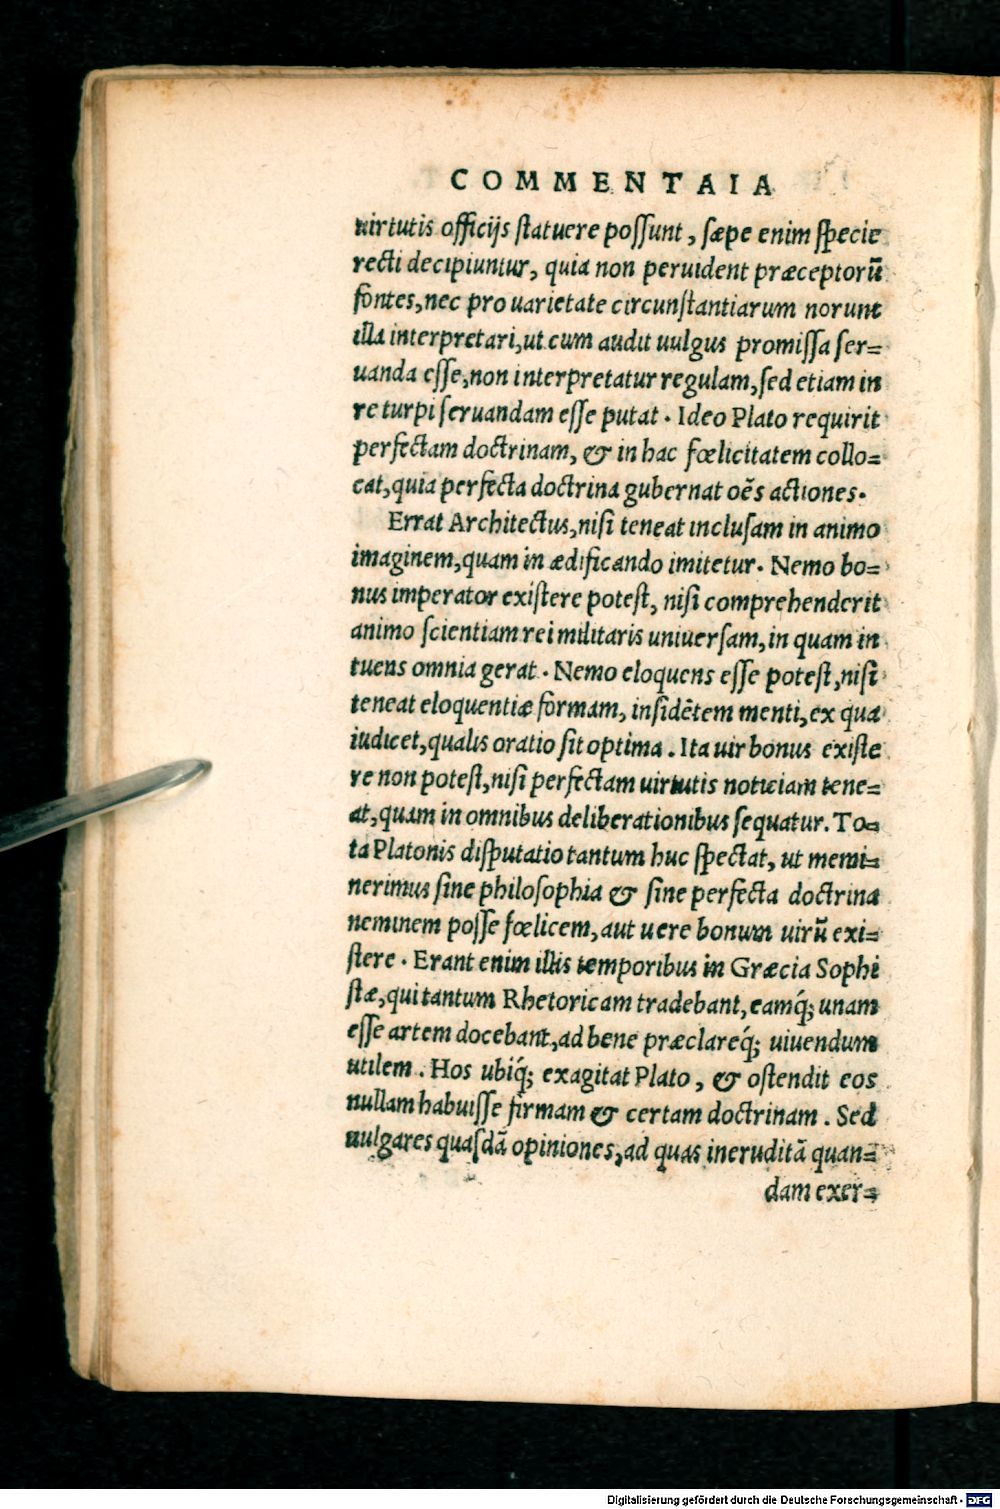 COMMENTAIA
uirtutis officijs statuere possunt, sæpe enim specie
recti decipiuntur, quia non peruident præceptorū
fontes, nec pro uarietate circunstantiarum norunt
illa interpretari, ut cum audit uulgus promissa ser=
uanda esse, non interpretatur regulam, sed etiam in
re turpi seruandam esse putat. Ideo Plato requirit
perfectam doctrinam, & in hac fœlicitatem collo=
cat, quia perfecta doctrina gubernat oēs actiones.
Errat Architectus, nisi teneat inclusam in animo
imaginem, quam in ædificando imitetur. Nemo bo=
nus imperator existere potest, nisi comprehenderit
animo scientiam rei militaris uniuersam, in quam in
tuens omnia gerat. Nemo eloquens esse potest, nisi
teneat eloquentiæ formam, insidētem menti, ex qua
iudicet, qualis oratio sit optima. Ita uir bonus existe
re non potest, nisi perfectam uirtutis noticiam tene=
at, quam in omnibus deliberationibus sequatur. To=
ta Platonis disputatio tantum huc spectat, ut memi=
nerimus sine philosophia & sine perfecta doctrina
neminem posse fœlicem, aut uere bonum uirū exi=
stere. Erant enim illis temporibus in Græcia Sophi
stæ, qui tantum Rhetoricam tradebant, eamq́; unam
esse artem docebant, ad bene præclareq́; uiuendum
utilem. Hos ubiq́; exagitat Plato, & ostendit eos
nullam habuisse firmam & certam doctrinam. Sed
uulgares quasdā opiniones, ad quas ineruditā quan=
dam exer=
Digitalisierung gefördert durch die Deutsche Forschungsgemeinschaft - DFG